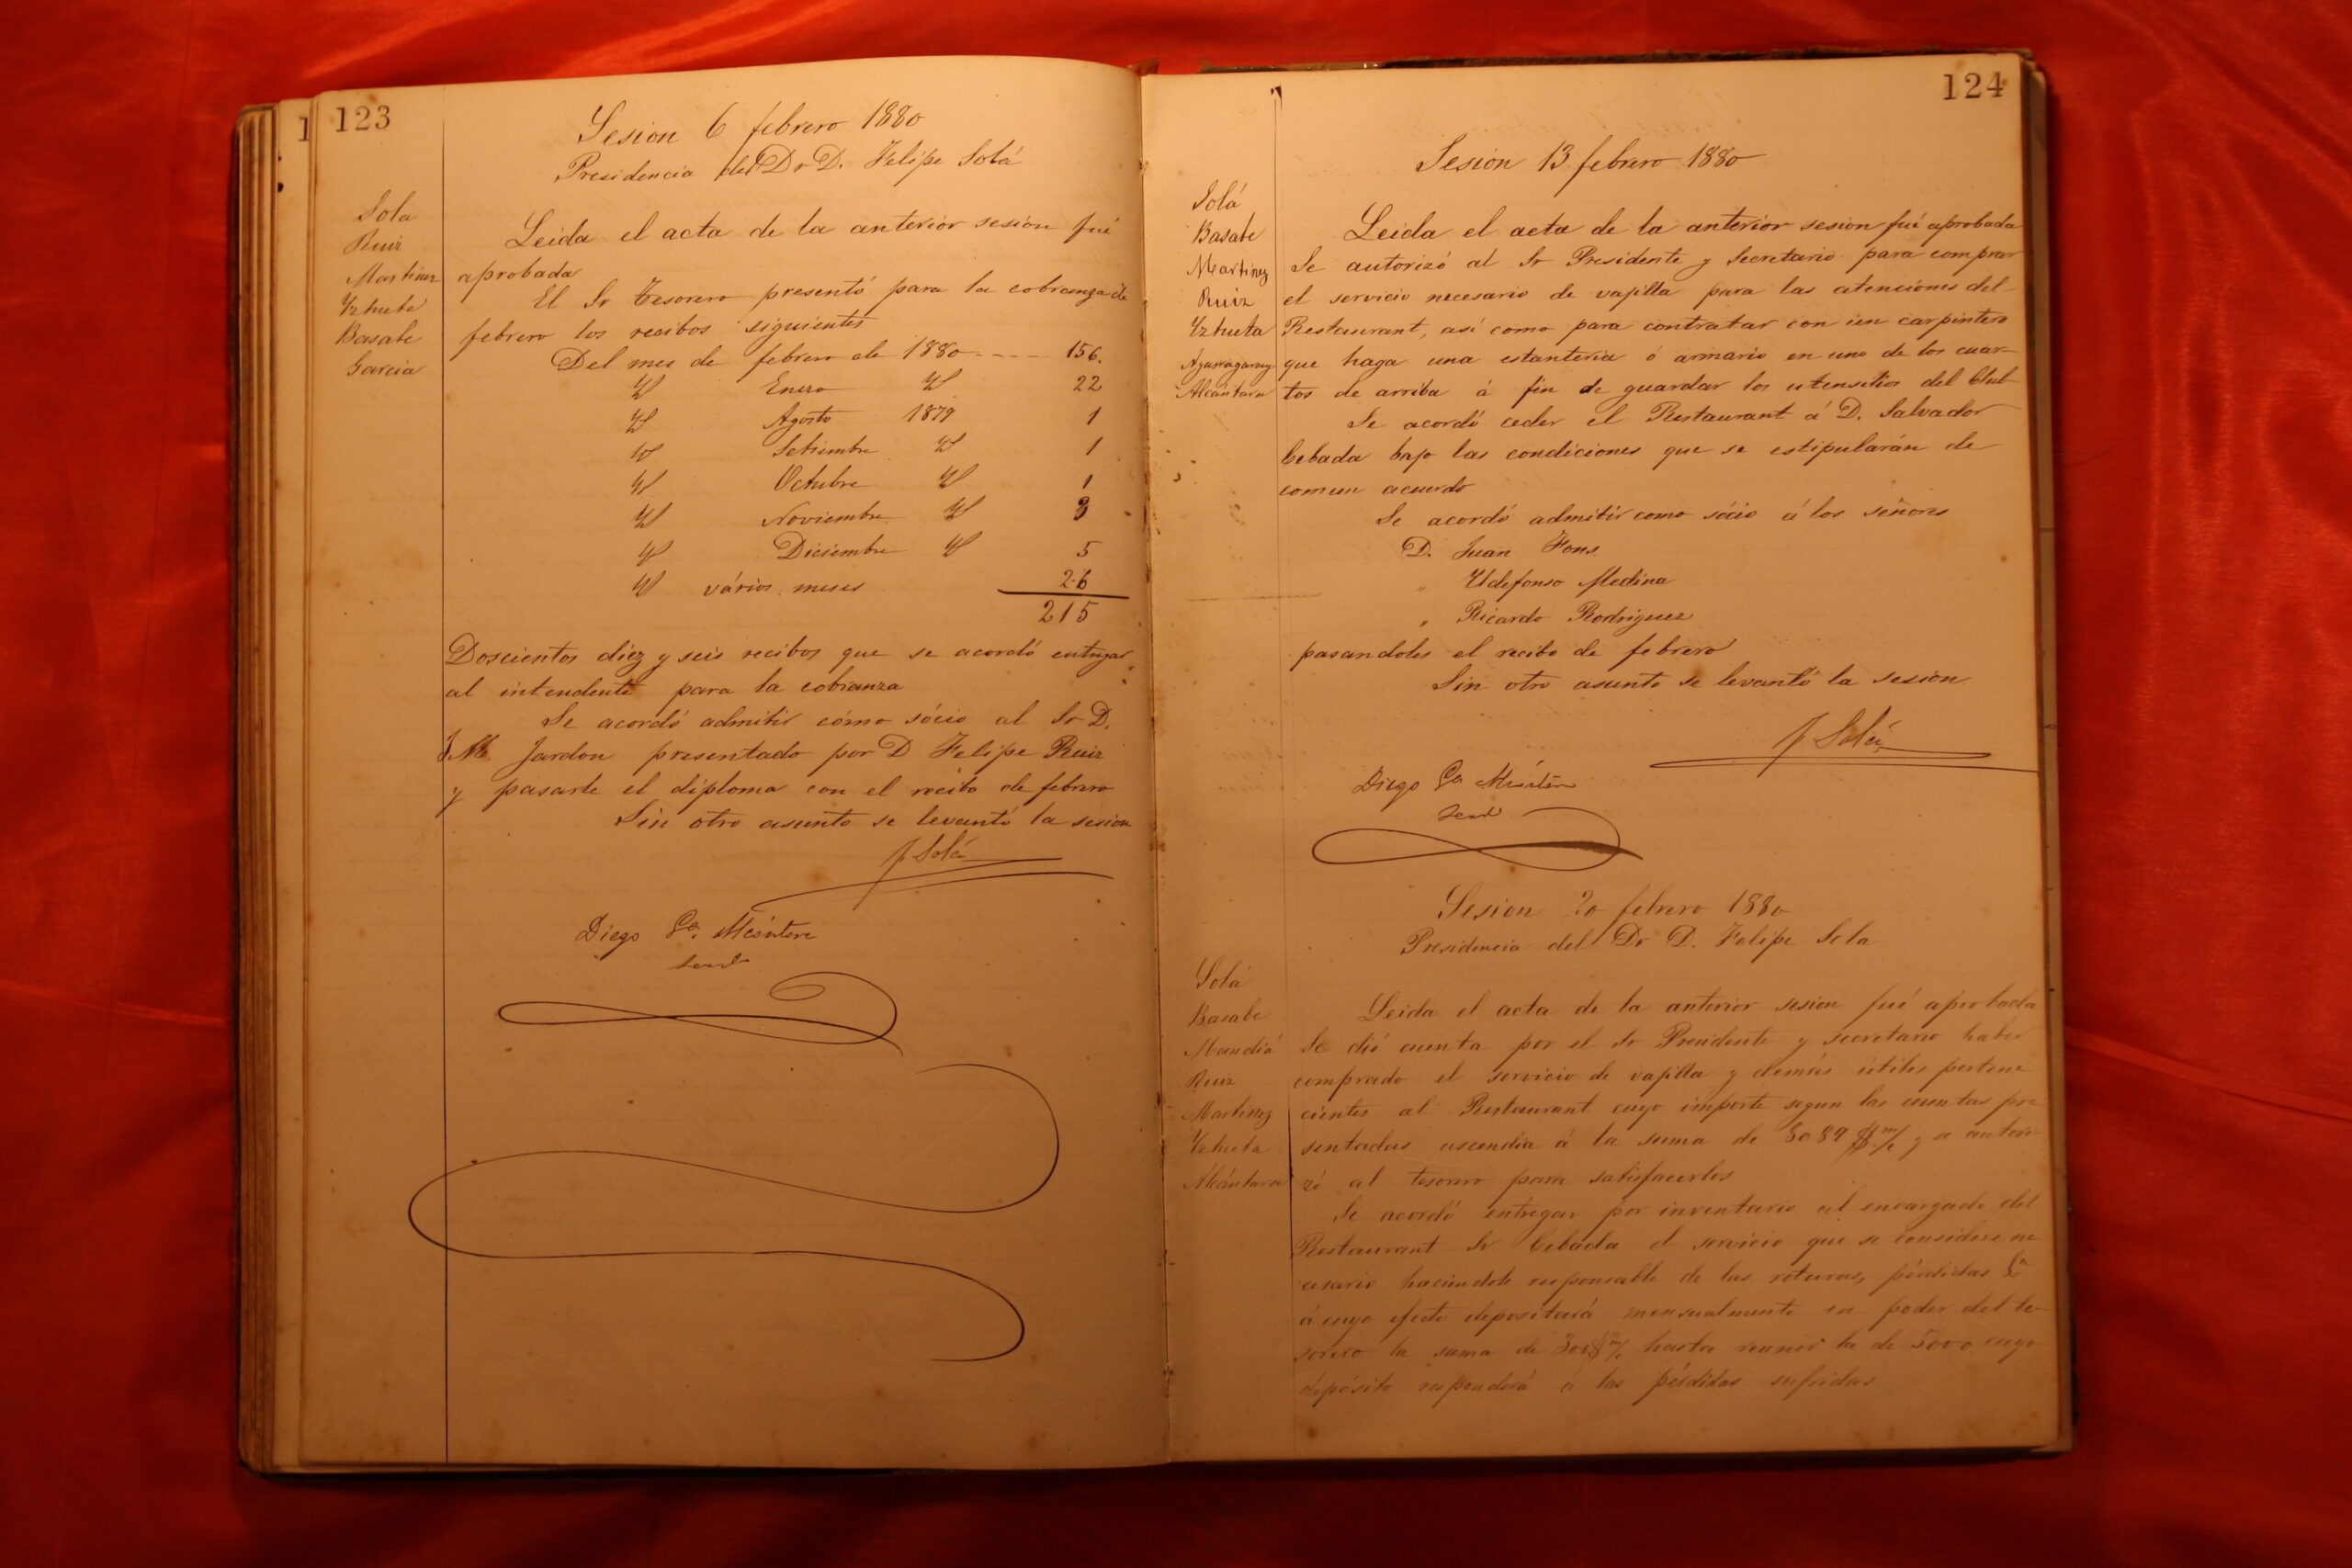 123
Sesion 6 febrero 1880
Presidencia del Dr D. Felipe Solá
Sola
Ruiz
Martinez
Yzhueta
Basabe
Garcia
Leida el acta de la anterior sesion fué
aprobada
El Sr Tesorero presentó para la cobranza de
febrero los recibos siguientes
Del mes de febrero de 1880 ---- 156.
Id Enero Id 22
Id Agosto 1879 1
Id Setiembre Id 1
Id Octubre Id 1
Id Noviembre Id 3
Id Diciembre Id 5
Id vários meses 26
215
Doscientos diez y seis recibos que se acordó entregar
al intendente para la cobranza
Se acordó admitir cómo sócio al Sr D.
J. M. Jardon presentado por D Felipe Ruiz
y pasarle el diploma con el recibo de febrero
Sin otro asunto se levantó la sesion
F Solá
Diego Ga.
124
Sesion 13 febrero 1880
Solá
Basabe
Martinez
Ruiz
Yzhueta
Alcántara
Leida el acta de la anterior sesion fué aprobada
Se autorizó al Sr Presidente y Secretario para comprar
el servicio necesario de vajilla para las atenciones del
Restaurant, así como para contratar con un carpintero
que haga una estanteria ó armario en uno de los cuar-
tos de arriba á fin de guardar los utensilios del Club
Se acordó ceder el Restaurant á D. Salvador
Cebada bajo las condiciones que se estipularán de
comun acuerdo
Se acordó admitir como sócio á los señores
D. Juan Fons
" Yldefonso Medina
" Ricardo Rodriguez
pasandoles el recibo de febrero
Sin otro asunto se levantó la sesion
F Solá
Diego Ga
Sesion 20 febrero 1880
Presidencia del Dr D. Felipe Sola
Solá
Basabe
Mandiá
Ruiz
Martinez
Yzhueta
Alcántara
Leida el acta de la anterior sesion fué aprobada
Se dió cuenta por el Sr Presidente y secretario haber
comprado el servicio de vajilla y demás útiles pertene
cientes al Restaurant cuyo importe segun las cuentas pre
sentadas ascendia á la suma de 8089 $ m/c y se autori-
zó al tesorero para satisfacerlos
Se acordó entregar por inventario al encargado del
Restaurant Sr Cebada el servicio que se considere ne
cesario haciendole responsable de las roturas, pérdidas &a
á cuyo efecto depositará mensualmente en poder del te-
sorero la suma de 300 $ m/c hasta reunir la de 5000 cuyo
depósito responderá á las pérdidas sufridas